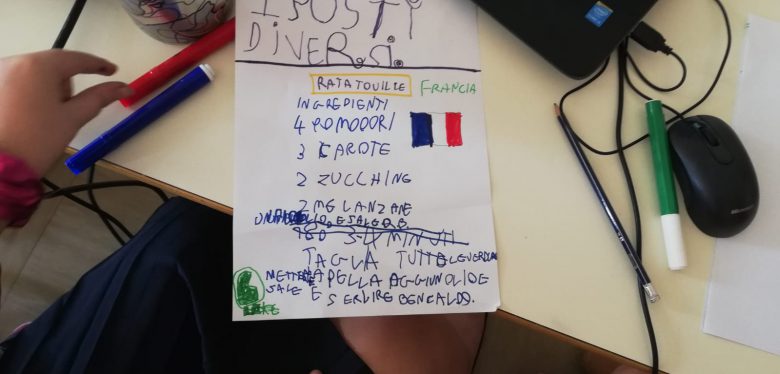 I POSTI
DIVERSI.
RATATOUILLE FRANCIA
INGREDIENTI
4 POMODORI
3 CAROTE
2 ZUCCHINE
2 MELANZANE
OLIO E SALE Q.B.
180 3-4 MINUTI
TAGLIA TUTTE LE VERDURE
METTERE
PELLA AGGIUNGI OLIO E
SALE E SERVIRE BEN CALDO.
intel
Microsoft